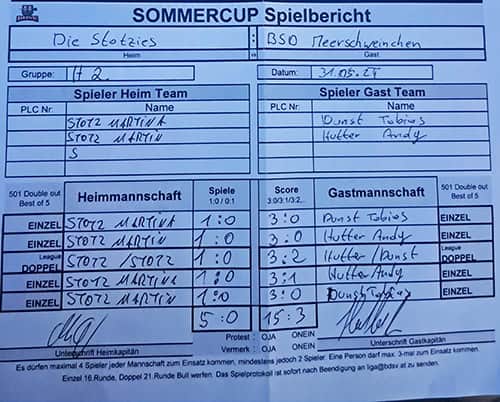 SOMMERCUP Spielbericht
Die Stotzies : BSD Meerschweinchen
Heim Gast
Gruppe: H 2. Datum: 31.05.25
Spieler Heim Team Spieler Gast Team
PLC Nr. Name PLC Nr. Name
STOTZ MARTINA Dunst Tobias
STOTZ MARTIN Hutter Andy
S
501 Double out Best of 5 Heimmannschaft Spiele 1:0 / 0:1 Score 3:0/3:1/3:2... Gastmannschaft 501 Double out Best of 5
EINZEL STOTZ MARTINA 1:0 3:0 Dunst Tobias EINZEL
EINZEL STOTZ MARTIN 1:0 3:0 Hutter Andy EINZEL
League DOPPEL STOTZ/STOTZ 1:0 3:2 Hutter/Dunst League DOPPEL
EINZEL STOTZ MARTINA 1:0 3:1 Hutter Andy EINZEL
EINZEL STOTZ MARTIN 1:0 3:0 Dunst Tobias EINZEL
5:0 15:3
Protest : OJA ONEIN
Unterschrift Heimkapitän Vermerk : OJA ONEIN Unterschrift Gastkapitän
Es dürfen maximal 4 Spieler jeder Mannschaft zum Einsatz kommen, mindestens jedoch 2 Spieler. Eine Person darf max. 3-mal zum Einsatz kommen.
Einzel 16.Runde, Doppel 21.Runde Bull werfen. Das Spielprotokoll ist sofort nach Beendigung an liga@bdsv.at zu senden.